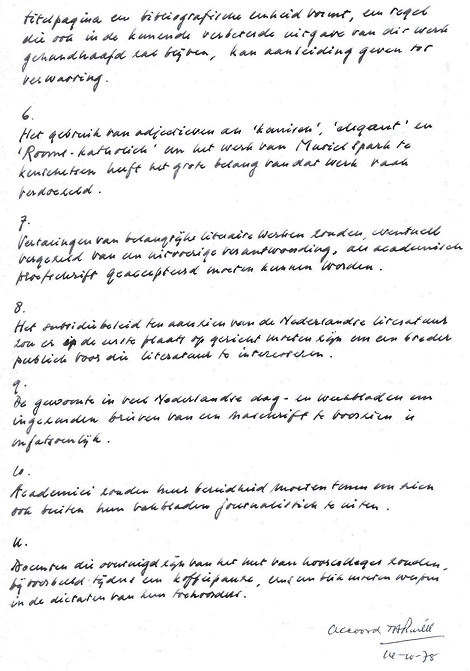 titelpagina en bibliografische eenheid vormt, een regel
die ook in de komende verbeterde uitgave van dit werk
gehandhaafd zal blijven, kan aanleiding geven tot
verwarring.
6.
Het gebruik van adjectieven als 'komisch', 'elegant' en
'Rooms-katholiek' om het werk van Muriel Spark te
kenschetsen heeft het grote belang van dat werk vaak
verdoezeld.
7.
Vertalingen van belangrijke literaire werken zouden, eventueel
vergezeld van een uitvoerige verantwoording, als academisch
proefschrift geaccepteerd moeten kunnen worden.
8.
Het subsidiebeleid ten aanzien van de Nederlandse literatuur
zou er in de eerste plaats op gericht moeten zijn om een breder
publiek voor die literatuur te interesseren.
9.
De gewoonte in veel Nederlandse dag- en weekbladen om
ingezonden brieven van een naschrift te voorzien is
onfatsoenlijk.
10.
Academici zouden hun bereidheid moeten tonen om zich
ook buiten hun vakbladen journalistiek te uiten.
11.
Docenten die overtuigd zijn van het nut van hoorcolleges zouden,
bijvoorbeeld tijdens een koffiepauze, eens een blik moeten werpen
in de dictaten van hun toehoorders.
Accoord